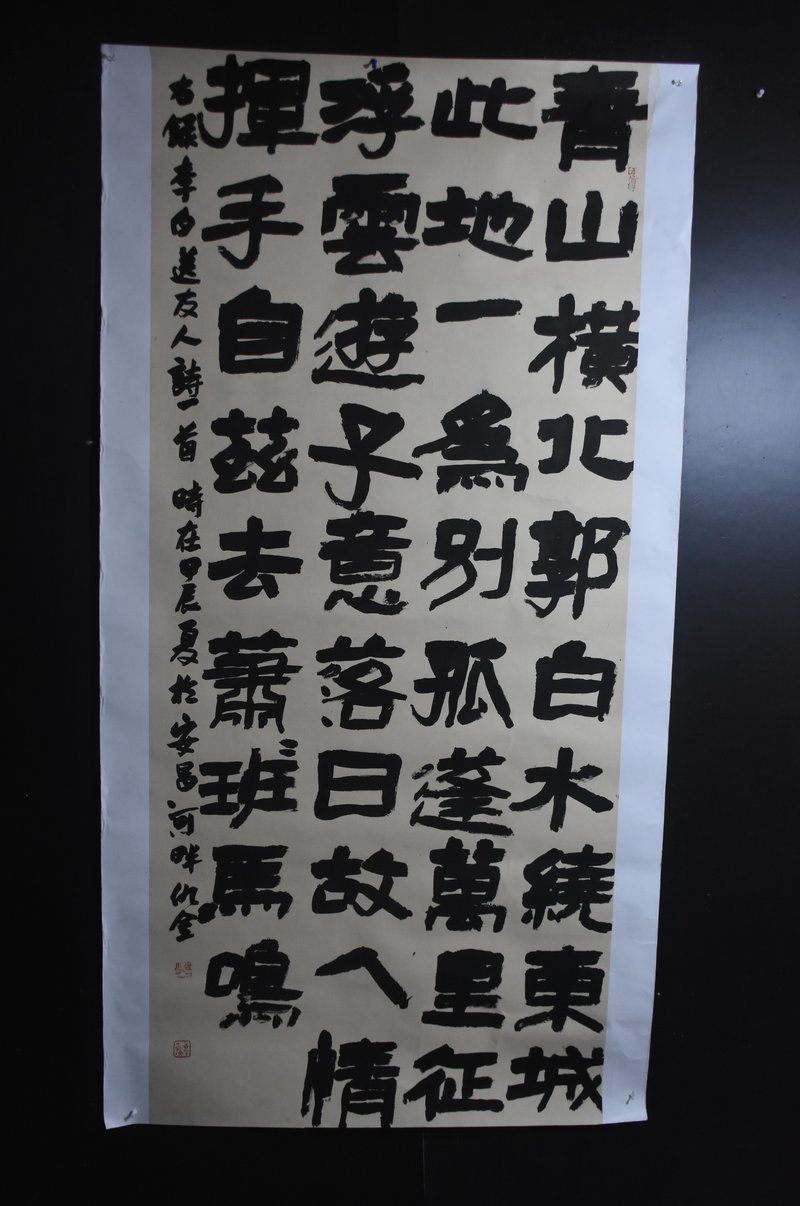 青山橫北郭白水繞東城
此地一爲別孤蓬萬里征
浮雲遊子意落日故人情
揮手自茲去蕭〻班馬鳴
右錄李白送友人詩一首 時在甲辰夏於安昌河畔